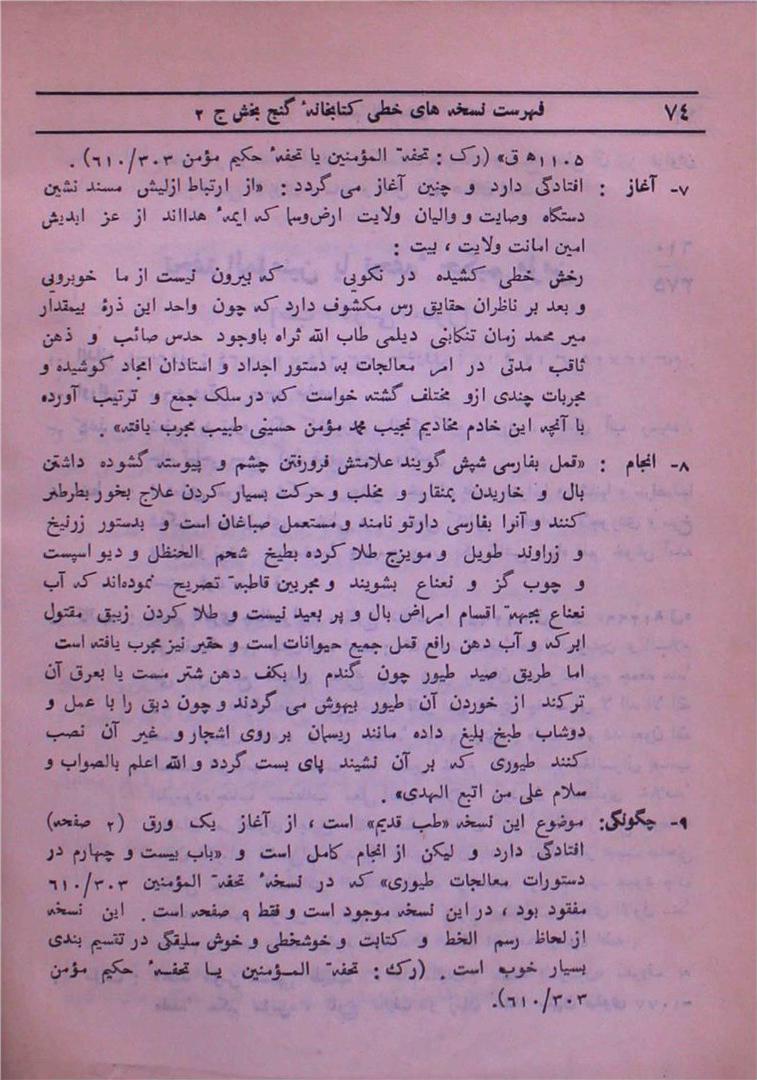 ۷٤ فهرست نسخه های خطی کتابخانهٔ گنج بخش ج ۲
۱۱۰۵ﻫ ق» (رک : تحفة المؤمنین یا تحفهٔ حکیم مؤمن ۶۱۰/۳۰۳) .
۷- آغاز : افتادگی دارد و چنین آغاز می گردد : «از ارتباط ازلیش مسند نشین
دستگاه وصایت و والیان ولایت ارض‌وسما که ایمهٔ هدااند از عز ابدیش
امین امانت ولایت ، بیت :
رخش خطی کشیده در نکویی که بیرون نیست از ما خوبرویی
و بعد بر ناظران حقایق رس مکشوف دارد که چون واحد این ذرهٔ بیمقدار
میر محمد زمان تنکابنی دیلمی طاب الله ثراه باوجود حدس صائب و ذهن
ثاقب مدتی در امر معالجات به دستور اجداد و استادان امجاد کوشیده و
مجربات چندی ازو مختلف گشته خواست که در سلک جمع و ترتیب آورده
با آنچه این خادم مخادیم نجیب محمد مؤمن حسینی طبیب مجرب یافته» .
۸- انجام : «قمل بفارسی شپش گویند علامتش فرورفتن چشم و پیوسته گشوده داشتن
بال و خاریدن بمنقار و مخلب و حرکت بسیار کردن علاج بخور بطرطیر
کنند و آنرا بفارسی دارتو نامند و مستعمل صباغان است و بدستور زرنیخ
و زراوند طویل و مویزج طلا کرده بطیخ شحم الحنظل و دیو اسپست
و چوب گز و نعناع بشویند و مجربین قاطبة تصریح نموده‌اند که آب
نعناع بجهة اقسام امراض بال و پر بعید نیست و طلا کردن زیبق مقتول
ابرکه و آب دهن رافع قمل جمیع حیوانات است و حقیر نیز مجرب یافته است
اما طریق صید طیور چون گندم را بکف دهن شتر مست یا بعرق آن
ترکند از خوردن آن طیور بیهوش می گردند و چون دبق را با عمل و
دوشاب طبخ بلیغ داده مانند ریسان بر روی اشجار و غیر آن نصب
کنند طیوری که بر آن نشیند پای بست گردد و الله اعلم بالصواب و
سلام علی من اتبع الهدی» .
۹- چگونگی: موضوع این نسخه «طب قدیم» است ، از آغاز یک ورق (۲ صفحه)
افتادگی دارد و لیکن از انجام کامل است و «باب بیست و چهارم در
دستورات معالجات طیوری» که در نسخهٔ تحفة المؤمنین ۶۱۰/۳۰۳
مفقود بود ، در این نسخه موجود است و فقط ۹ صفحه است . این نسخه
از لحاظ رسم الخط و کتابت و خوشخطی و خوش سلیقگی در تقسیم بندی
بسیار خوب است . (رک: تحفة المؤمنین یا تحفهٔ حکیم مؤمن
۶۱۰/۳۰۳).